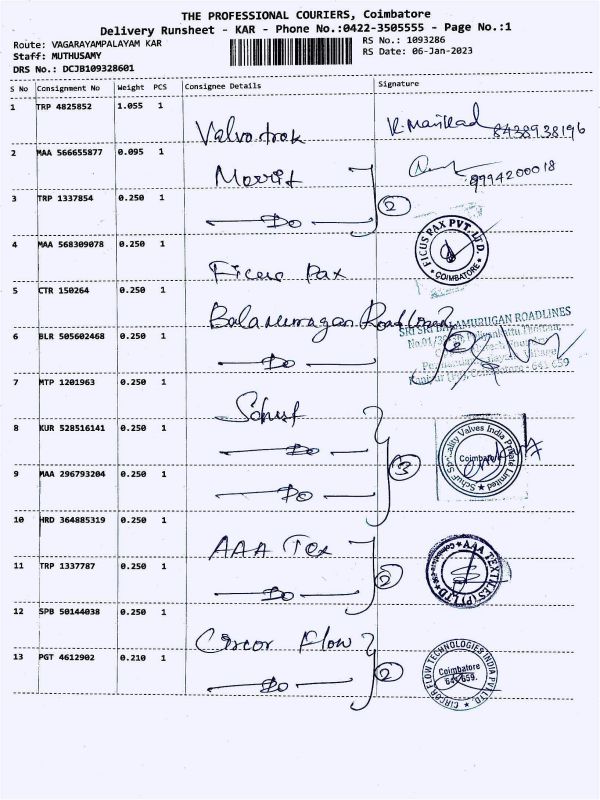 THE PROFESSIONAL COURIERS, Coimbatore
Delivery Runsheet - KAR - Phone No.:0422-3505555 - Page No.:1
Route: VAGARAYAMPALAYAM KAR
RS No.: 1093286
Staff: MUTHUSAMY
RS Date: 06-Jan-2023
DRS No.: DCJB109328601
S No Consignment No Weight PCS Consignee Details Signature
1 TRP 4825852 1.055 1
Valvotrak 8438938196
2 MAA 566655877 0.095 1
Morrit 9994200018
3 TRP 1337854 0.250 1
Do 2
FICUS PAX PVT. LTD. COIMBATORE
4 MAA 568309078 0.250 1
Ficus Pax
5 CTR 150264 0.250 1
Balamurugan Roadlines
SRI BALAMURUGAN ROADLINES
6 BLR 505602468 0.250 1
Do 2
Coimbatore - 641 659
7 MTP 1201963 0.250 1
Schuf
8 KUR 528516141 0.250 1
Do
Schuf Speciality Valves India Private Limited
Coimbatore
9 MAA 296793204 0.250 1
Do 3
10 HRD 364885319 0.250 1
AAA Tex
11 TRP 1337787 0.250 1
Do 2
AAA TEXTILES (P) LTD
12 SPB 50144038 0.250 1
Circor Flow
13 PGT 4612902 0.210 1
Do 2
CIRCOR FLOW TECHNOLOGIES INDIA PVT. LTD.
Coimbatore
641 659.